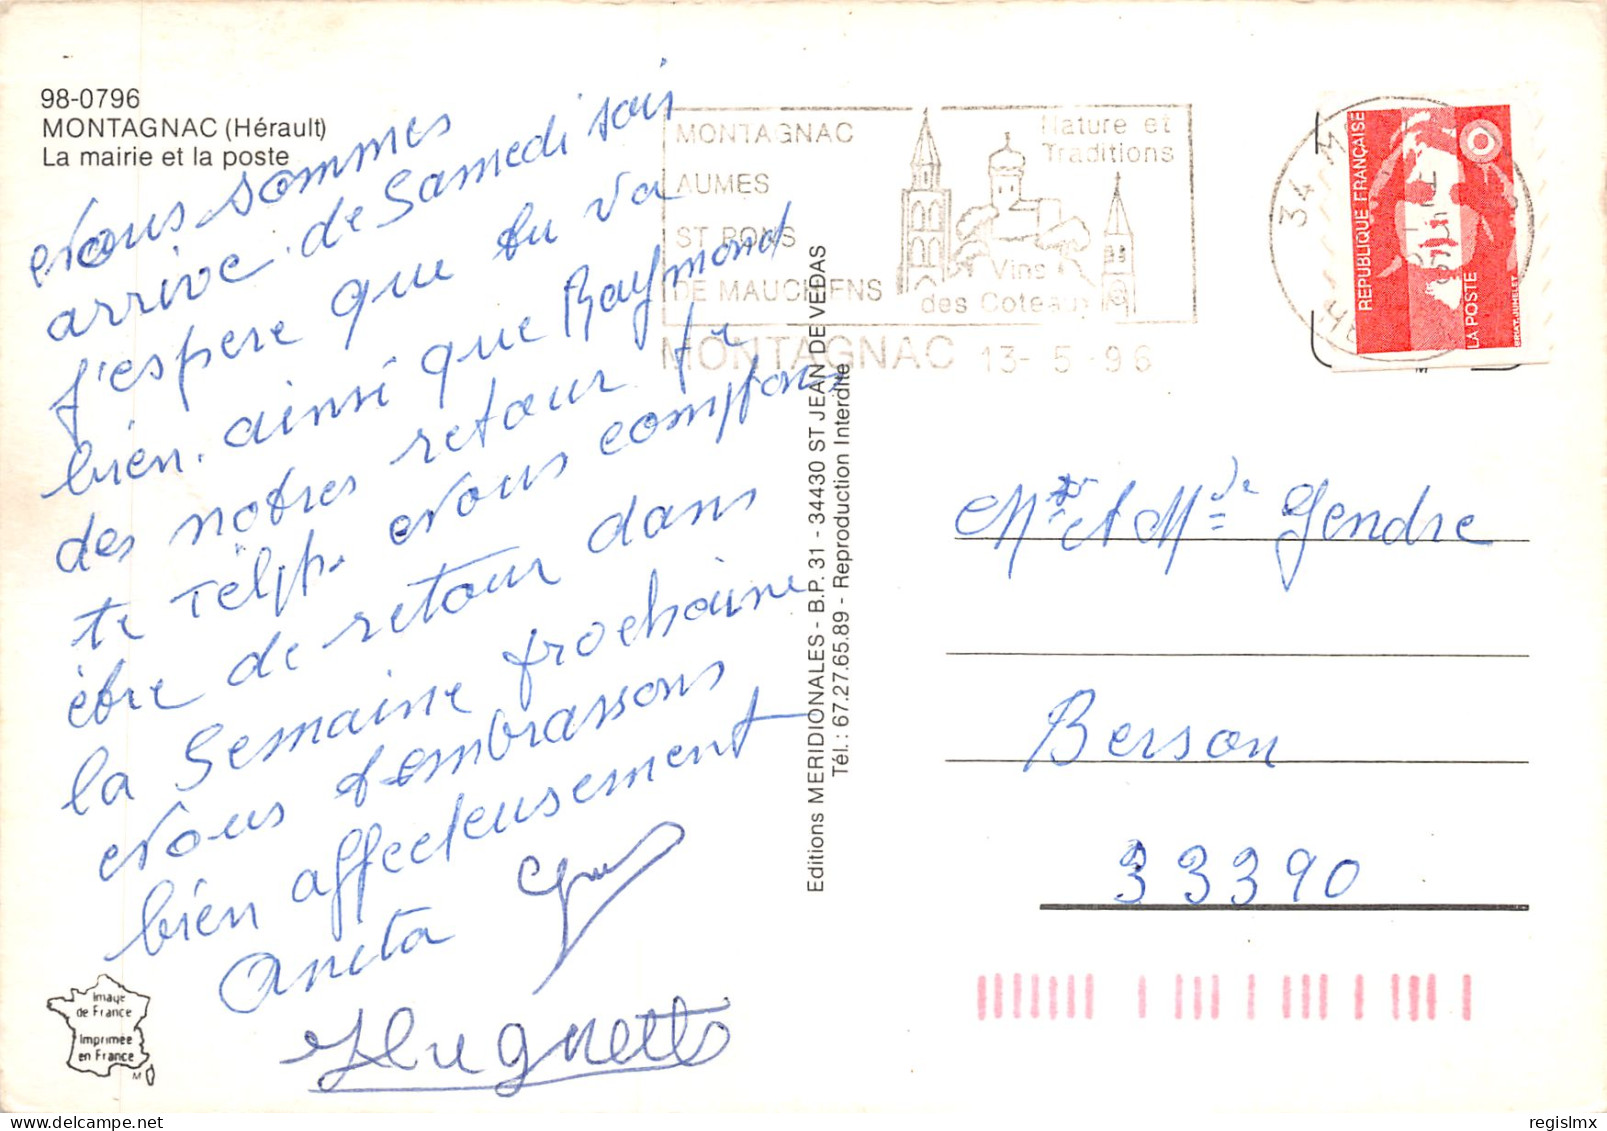 98-0796
MONTAGNAC (Hérault)
La mairie et la poste
Nous sommes
arrive de Samedi soir
j'espere que tu va
bien. ainsi que Raymond
des notres retour je
te Télph. Nous comptons
être de retour dans
la Semaine prochaine
Nous t'embrassons
bien affecteusement
Anita
Huguette
Image
de France
Imprimée
en France
M
Editions MERIDIONALES - B.P. 31 - 34430 ST JEAN DE VEDAS
Tél.: 67.27.65.89 - Reproduction Interdite
MONTAGNAC
AUMES
ST PONS
DE MAUCHIENS
Nature et
Traditions
Vins
des Coteaux
MONTAGNAC 13-5-96
34 M
REPUBLIQUE FRANÇAISE
LA POSTE
Mr et Mde Gendre
Berson
33390
regislmx